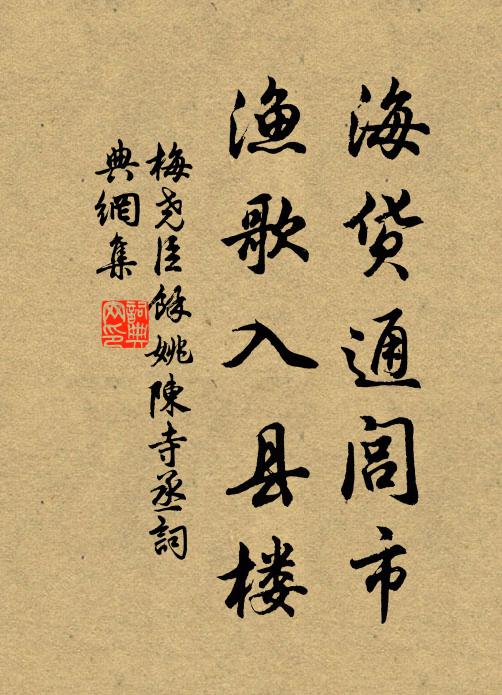 海货通闾市
渔歌入县楼
梅尧臣馀姚陈寺丞词
典网集
词典网印